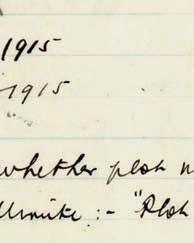 1915
1915
whether plot n
:- "Plot